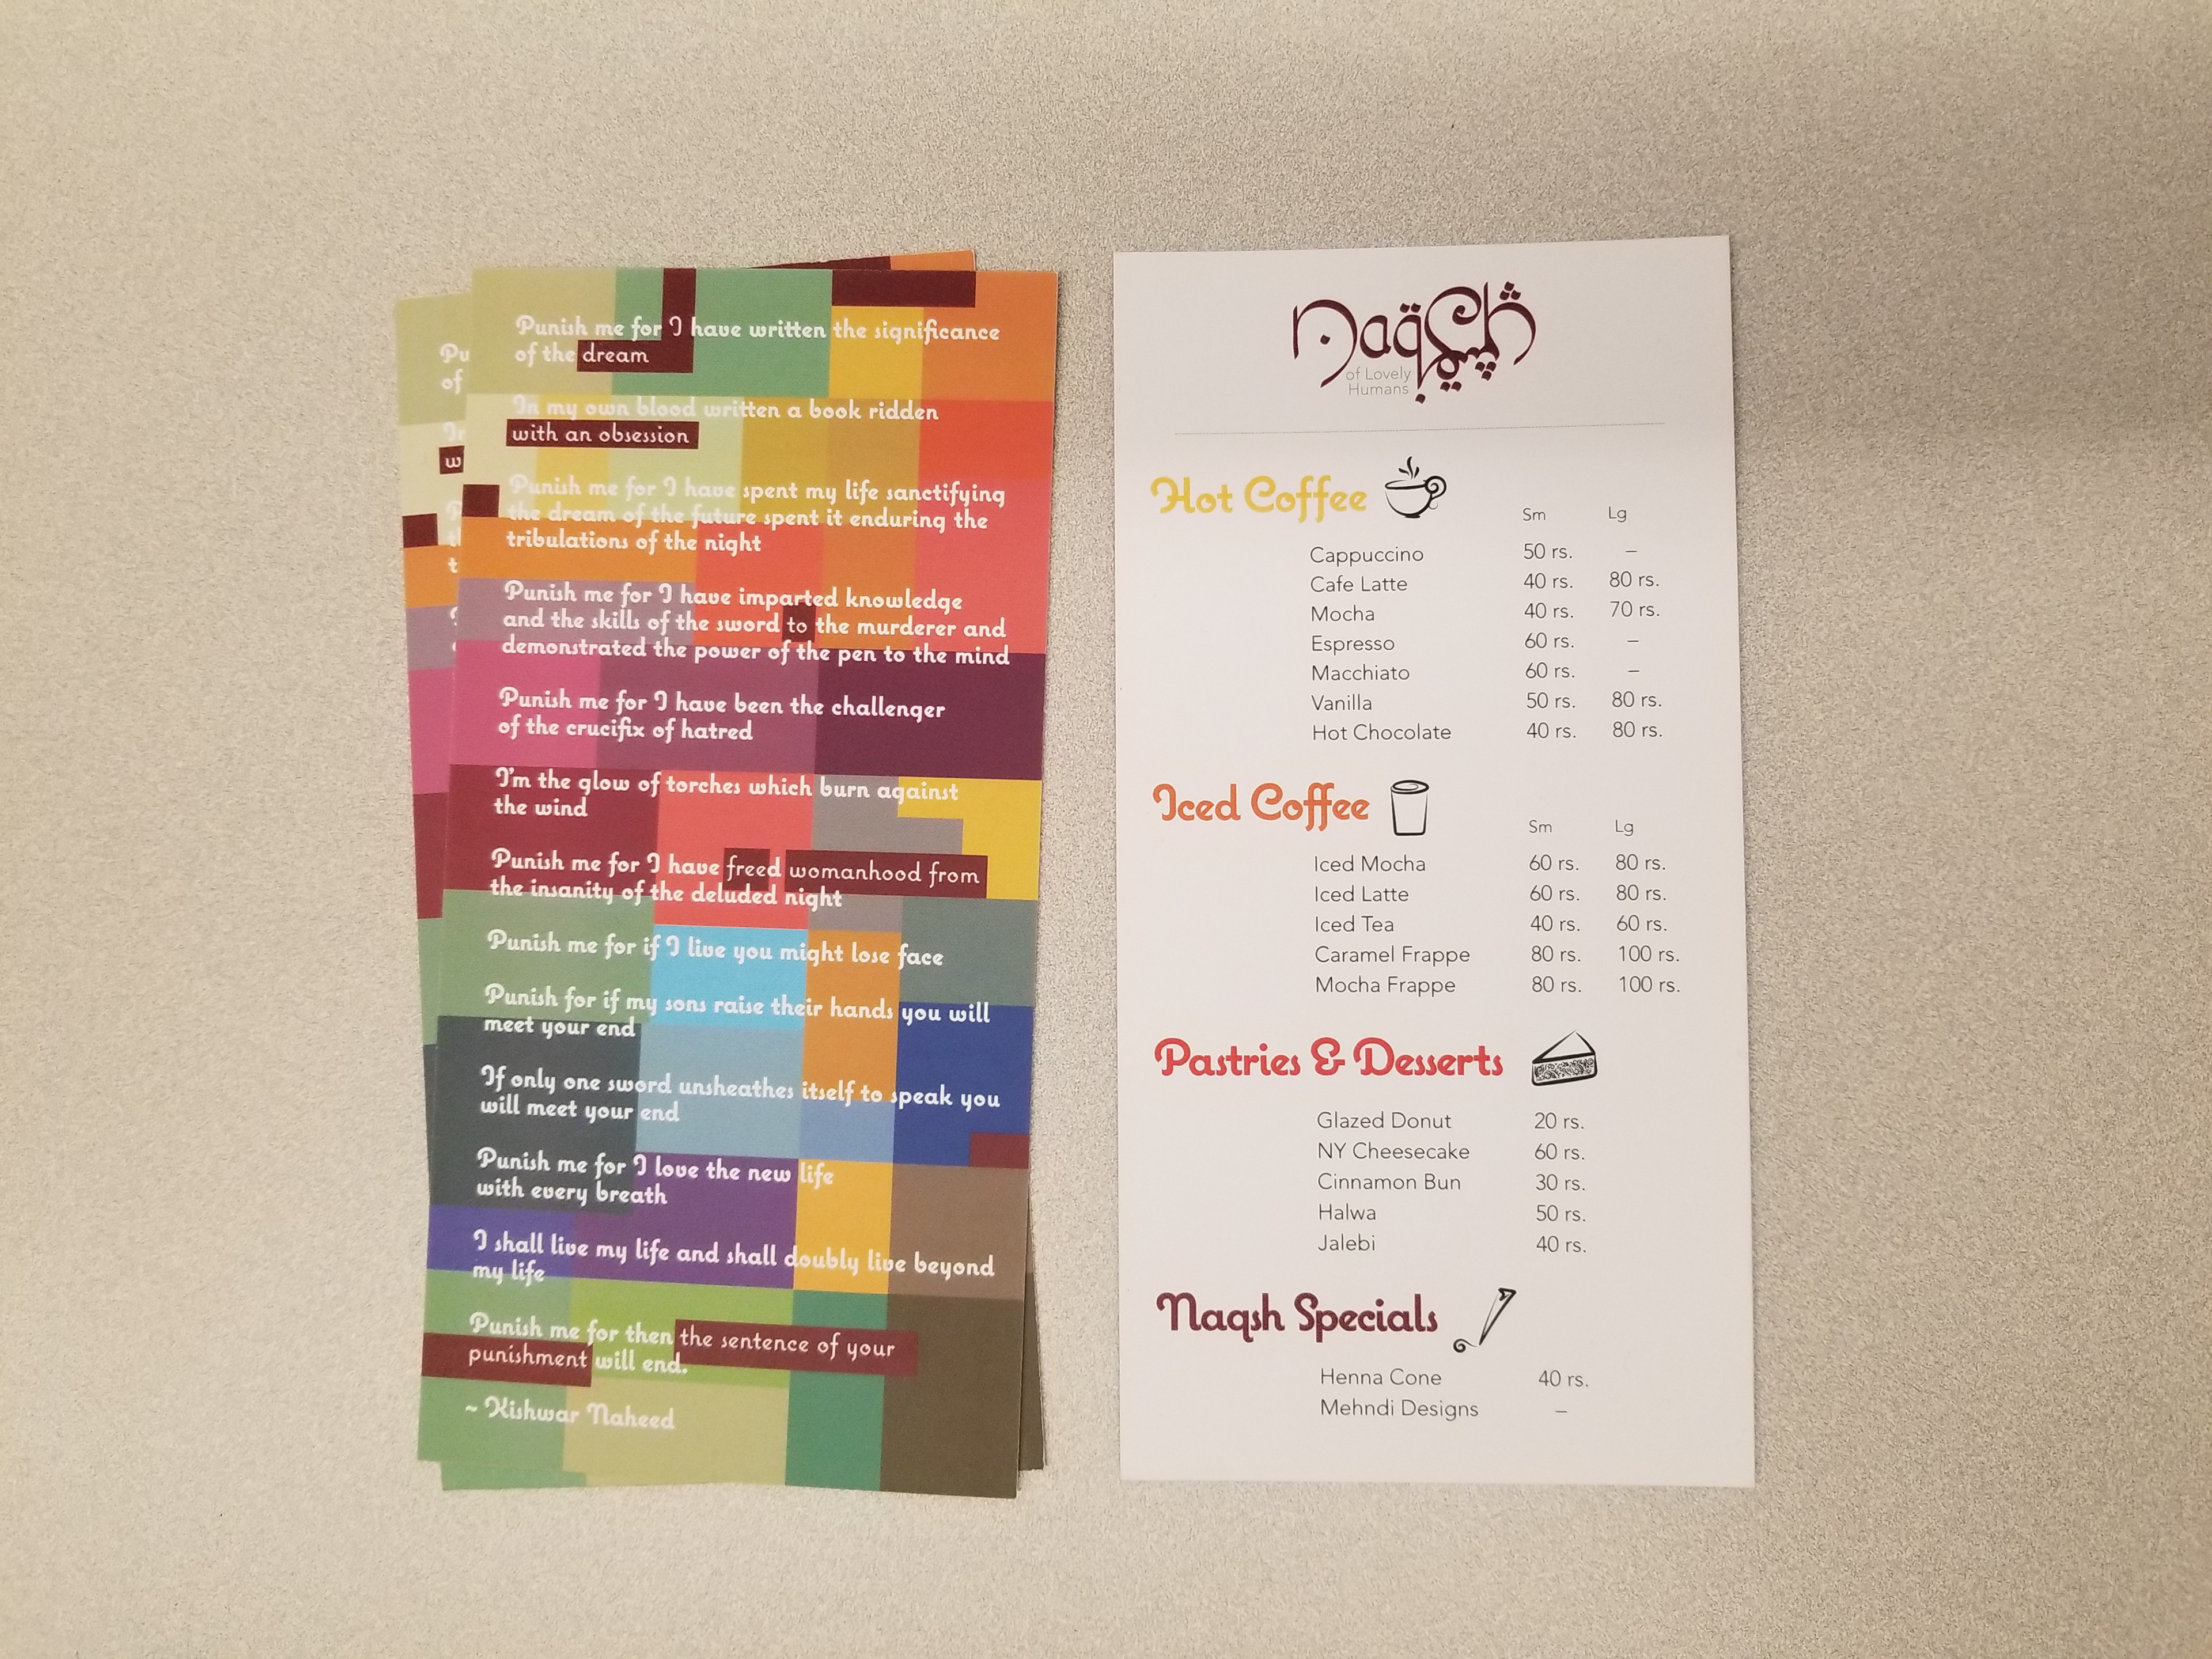 Punish me for I have written the significance
of the dream
In my own blood written a book ridden
with an obsession
Punish me for I have spent my life sanctifying
the dream of the future spent it enduring the
tribulations of the night
Punish me for I have imparted knowledge
and the skills of the sword to the murderer and
demonstrated the power of the pen to the mind
Punish me for I have been the challenger
of the crucifix of hatred
I'm the glow of torches which burn against
the wind
Punish me for I have freed womanhood from
the insanity of the deluded night
Punish me for if I live you might lose face
Punish for if my sons raise their hands you will
meet your end
If only one sword unsheathes itself to speak you
will meet your end
Punish me for I love the new life
with every breath
I shall live my life and shall doubly live beyond
my life
Punish me for then the sentence of your
punishment will end.
~ Kishwar Naheed
Pu
of
In
w
Naqsh
of Lovely
Humans
Hot Coffee
Sm Lg
Cappuccino 50 rs. –
Cafe Latte 40 rs. 80 rs.
Mocha 40 rs. 70 rs.
Espresso 60 rs. –
Macchiato 60 rs. –
Vanilla 50 rs. 80 rs.
Hot Chocolate 40 rs. 80 rs.
Iced Coffee
Sm Lg
Iced Mocha 60 rs. 80 rs.
Iced Latte 60 rs. 80 rs.
Iced Tea 40 rs. 60 rs.
Caramel Frappe 80 rs. 100 rs.
Mocha Frappe 80 rs. 100 rs.
Pastries & Desserts
Glazed Donut 20 rs.
NY Cheesecake 60 rs.
Cinnamon Bun 30 rs.
Halwa 50 rs.
Jalebi 40 rs.
Naqsh Specials
Henna Cone 40 rs.
Mehndi Designs –